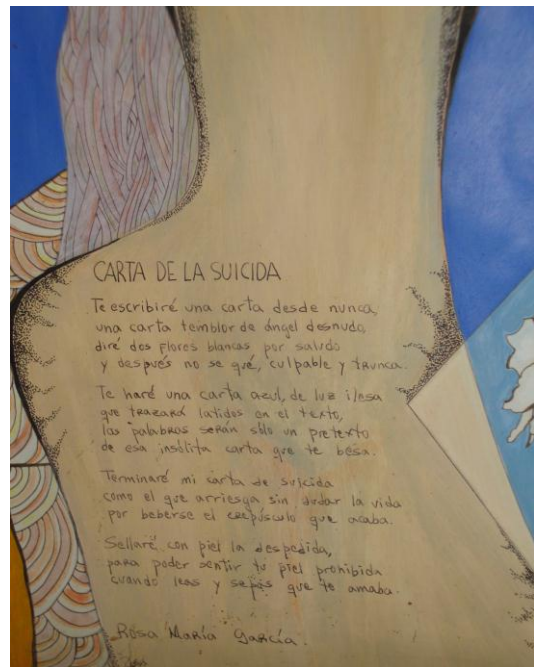 CARTA DE LA SUICIDA
Te escribiré una carta desde nunca,
una carta temblor de ángel desnudo,
diré dos flores blancas por saludo
y después no se qué, culpable y trunca.
Te haré una carta azul, de luz ilesa
que trazará latidos en el texto,
las palabras serán sólo un pretexto
de esa insólita carta que te besa.
Terminaré mi carta de suicida
como el que arriesga sin dudar la vida
por beberse el crepúsculo que acaba.
Sellaré con piel la despedida,
para poder sentir tu piel prohibida
cuando leas y sepas que te amaba.
Rosa María García.